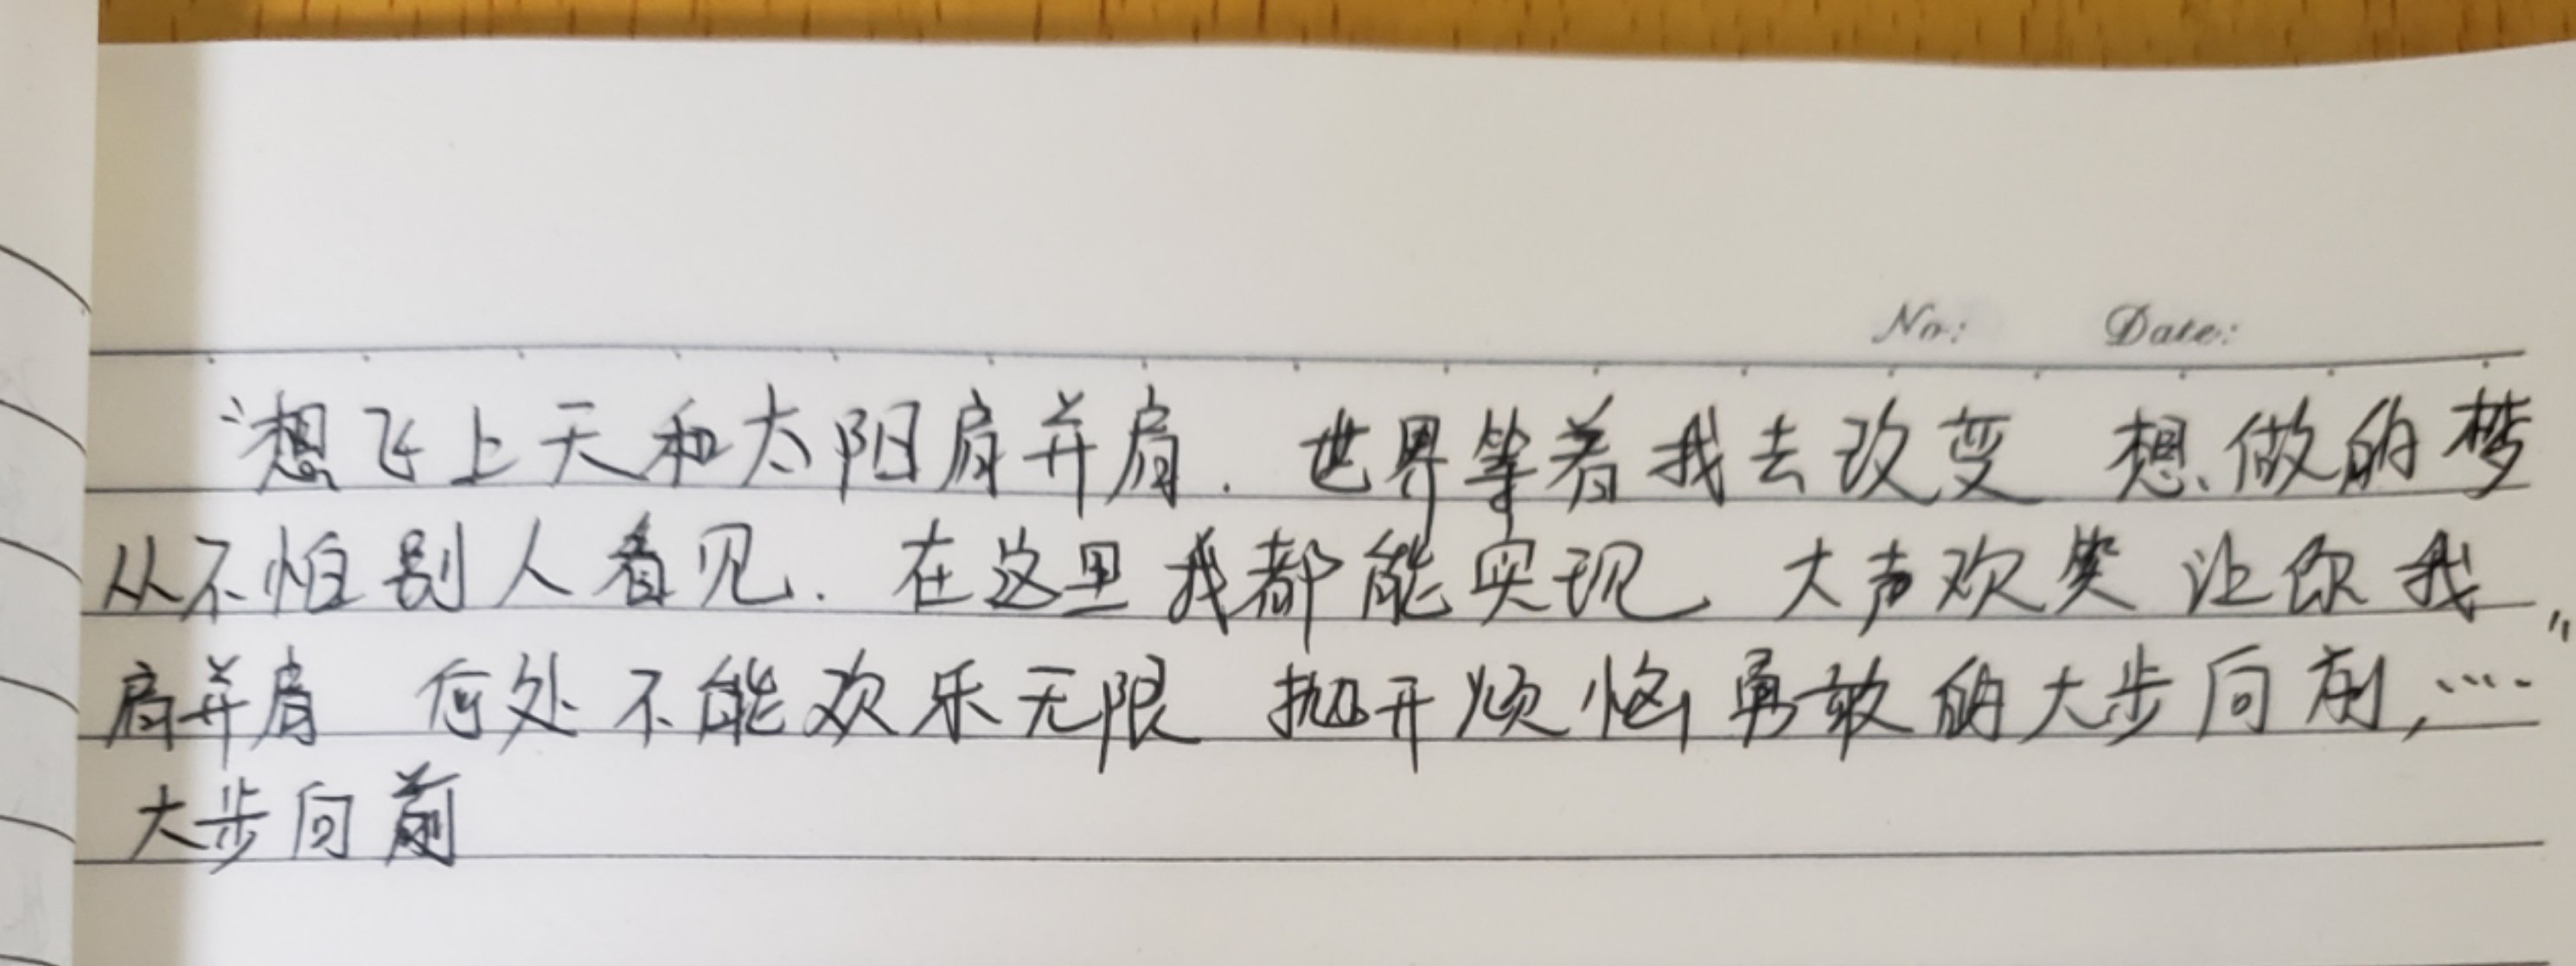 No: Date:
“想飞上天和太阳肩并肩. 世界等着我去改变 想做的梦
从不怕别人看见. 在这里我都能实现, 大声欢笑 让你我
肩并肩 何处不能欢乐无限 抛开烦恼勇敢的大步向前,……”
大步向前